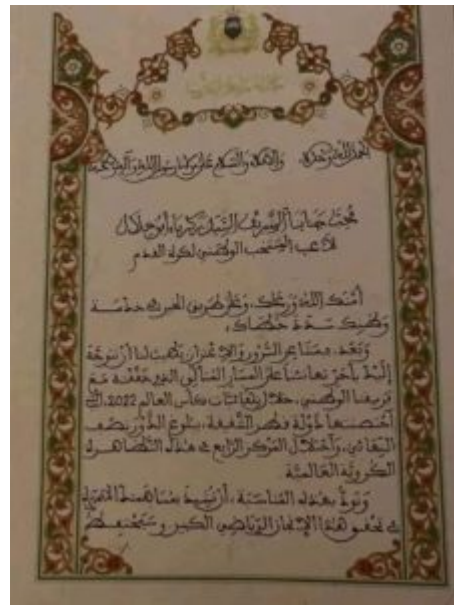 الحمد لله وحده، والصلاة والسلام على مولانا رسول الله وآله وصحبه
محب جنابنا الشريف السيد زكرياء أبو خلال
لاعب المنتخب الوطني لكرة القدم
أمنك الله ورعاك، وعلى طريق الخير في خدمة
وطنك سدد خطاك،
وبعد، فبمشاعر السرور والاعتزاز يطيب لنا أن نتوجه
إليك بأحر تهانئنا على المسار المتألق الذي حققته مع
فريقنا الوطني، خلال نهائيات كأس العالم 2022، التي
احتضنتها دولة قطر الشقيقة، ببلوغ الدور نصف
النهائي، واحتلال المركز الرابع في هذه التظاهرة
الكروية العالمية
ونود بهذه المناسبة، أن نشيد بمساهمتك
في تحقيق هذا الإنجاز الرياضي الكبير